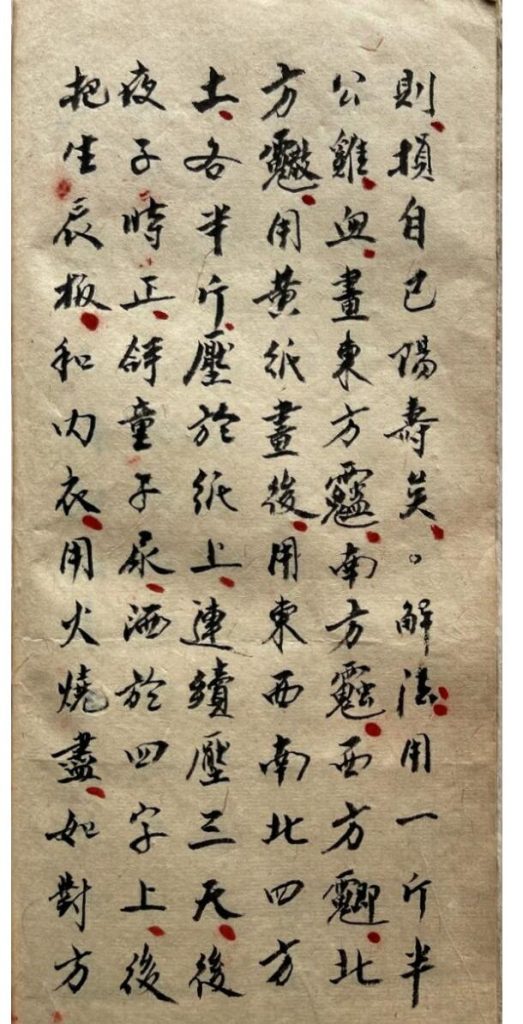 則損自己陽壽矣。解法用一斤半
公雞血畫東方南方西方北
方用黃紙畫後用東西南北四方
土各半斤壓於紙上連續壓三天後
夜子時正童子尿洒於四字上後
把生辰板和內衣用火燒盡如對方